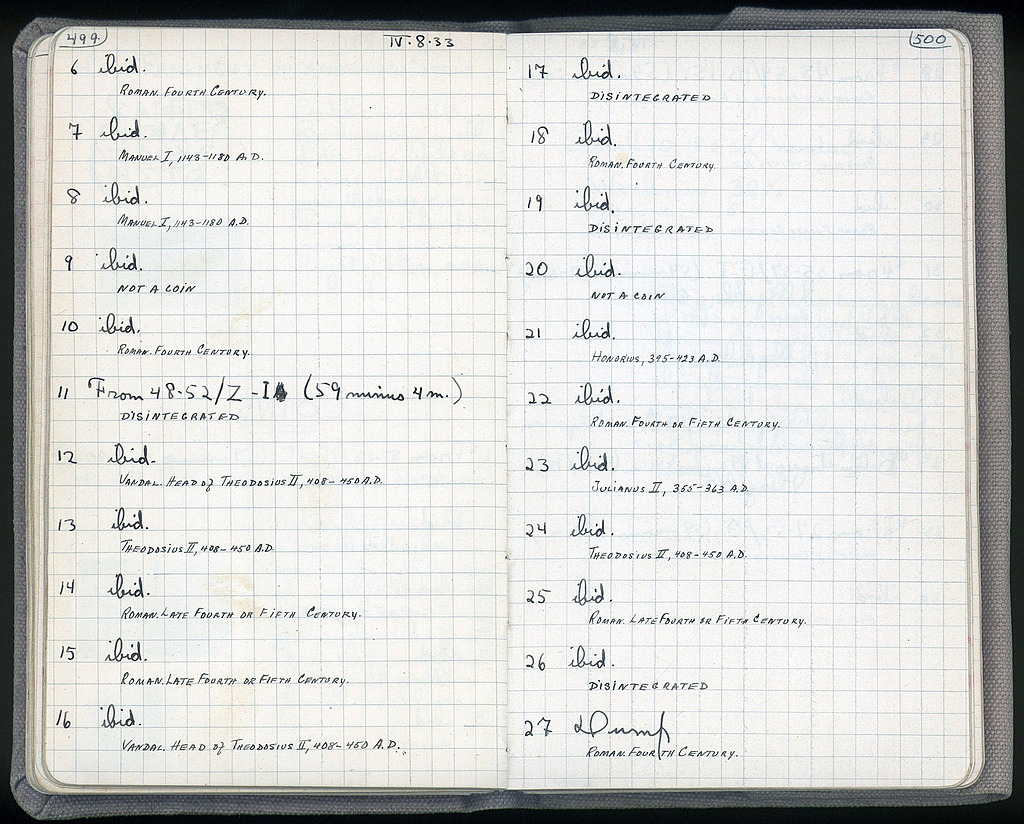 499
IV·8·33
6 ibid.
ROMAN. FOURTH CENTURY.
7 ibid.
MANUEL I, 1143-1180 A.D.
8 ibid.
MANUEL I, 1143-1180 A.D.
9 ibid.
NOT A COIN
10 ibid.
ROMAN. FOURTH CENTURY.
11 From 48-52/Z - (59 minus 4 m.)
DISINTEGRATED
12 ibid.
VANDAL. HEAD of THEODOSIUS II, 408-450 A.D.
13 ibid.
THEODOSIUS II, 408-450 A.D.
14 ibid.
ROMAN. LATE FOURTH OR FIFTH CENTURY.
15 ibid.
ROMAN. LATE FOURTH OR FIFTH CENTURY.
16 ibid.
VANDAL. HEAD of THEODOSIUS II, 408-450 A.D.
500
17 ibid.
DISINTEGRATED
18 ibid.
ROMAN. FOURTH CENTURY.
19 ibid.
DISINTEGRATED
20 ibid.
NOT A COIN
21 ibid.
HONORIUS, 395-423 A.D.
22 ibid.
ROMAN. FOURTH OR FIFTH CENTURY.
23 ibid.
JULIANUS II, 355-363 A.D.
24 ibid.
THEODOSIUS II, 408-450 A.D.
25 ibid.
ROMAN. LATE FOURTH OR FIFTH CENTURY.
26 ibid.
DISINTEGRATED
27 Dump
ROMAN. FOURTH CENTURY.